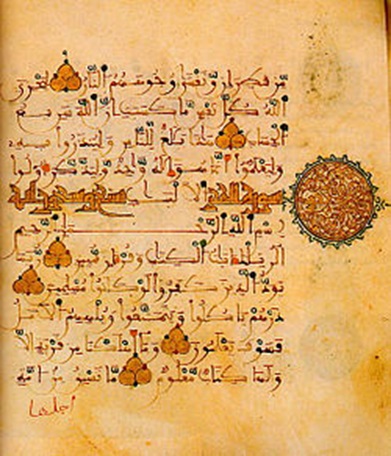 من قطران وتغشى وجوههم النار ليجزي
الله كل نفس ما كسبت إن الله سريع
الحساب هذا بلغ للناس ولينذروا به
وليعلموا أنما هو إله وحد وليذكر أولوا
سورة الحجر الألبب تسع وتسعون آية
بسم الله الرحمن الرحيم
الر تلك ءايت الكتب وقرءان مبين ربما
يود الذين كفروا لو كانوا مسلمين
ذرهم يأكلوا ويتمتعوا ويلههم الأمل
فسوف يعلمون وما أهلكنا من قرية إلا
ولها كتاب معلوم ما تسبق من أمة
أجلها